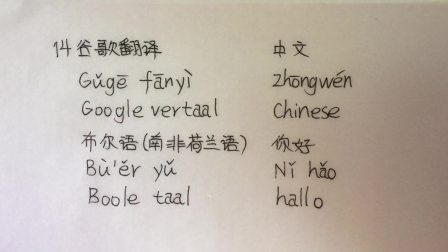 14谷歌翻译 中文
Gǔgē fānyì Zhōngwén
Google vertaal Chinese
布尔语(南非荷兰语) 你好
Bù'ěr yǔ Nǐ hǎo
Boole taal hallo